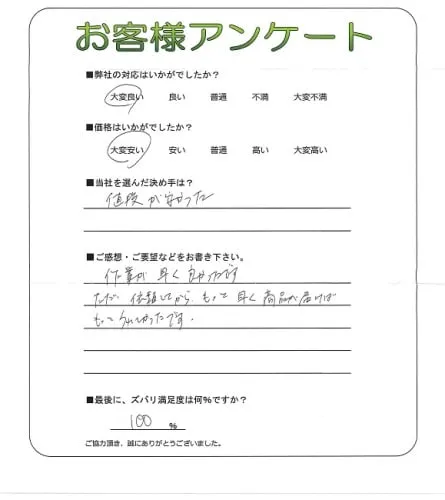 お客様アンケート
■弊社の対応はいかがでしたか？
大変良い 良い 普通 不満 大変不満
■価格はいかがでしたか？
大変安い 安い 普通 高い 大変高い
■当社を選んだ決め手は？
値段が安かった
■ご感想・ご要望などをお書き下さい。
作業が早く良かったです
ただ 依頼してから もっと早く商品が届けば
もっとうれしかったです。
■最後に、ズバリ満足度は何%ですか？
100 %
ご協力頂き、誠にありがとうございました。